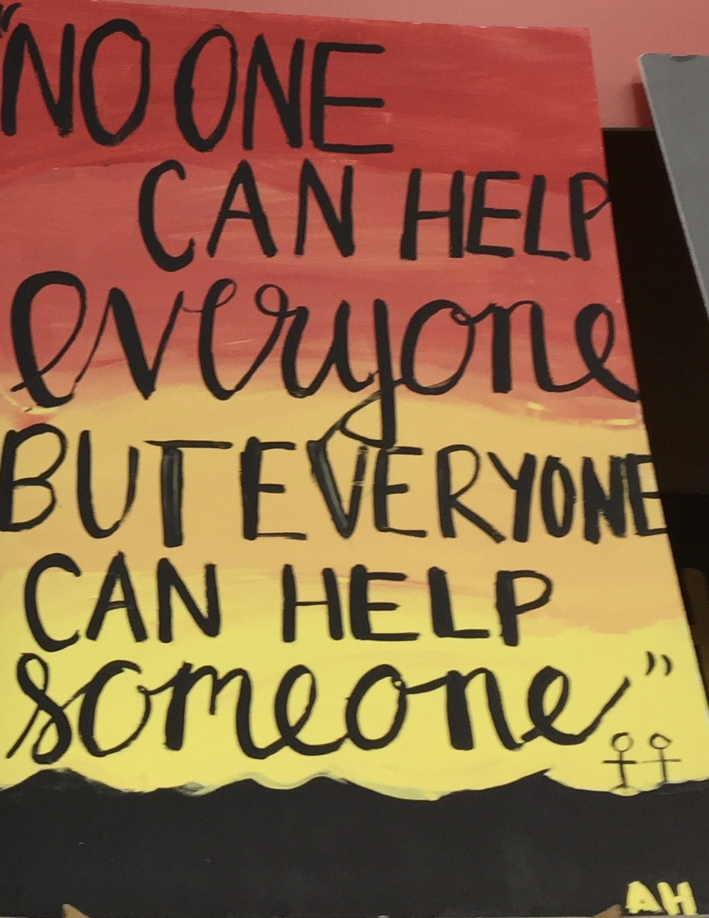 "NO ONE
CAN HELP
everyone
BUT EVERYONE
CAN HELP
someone"
AH